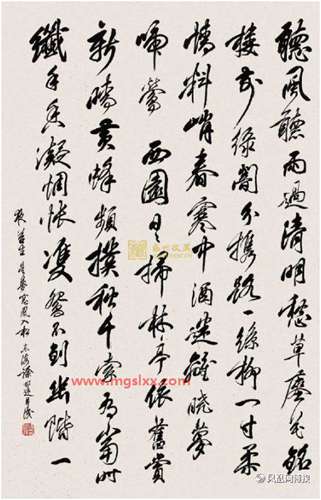 聽風聽雨過清明愁草瘞花銘
樓前綠闇分攜路一絲柳一寸柔
情料峭春寒中酒迷離曉夢
啼鶯 西園日日掃林亭依舊賞
新晴黃蜂頻撲秋千索有當時
纖手香凝惆悵雙鴛不到幽階一
夜苔生 吳夢窗風入松
www.mgslxx.com